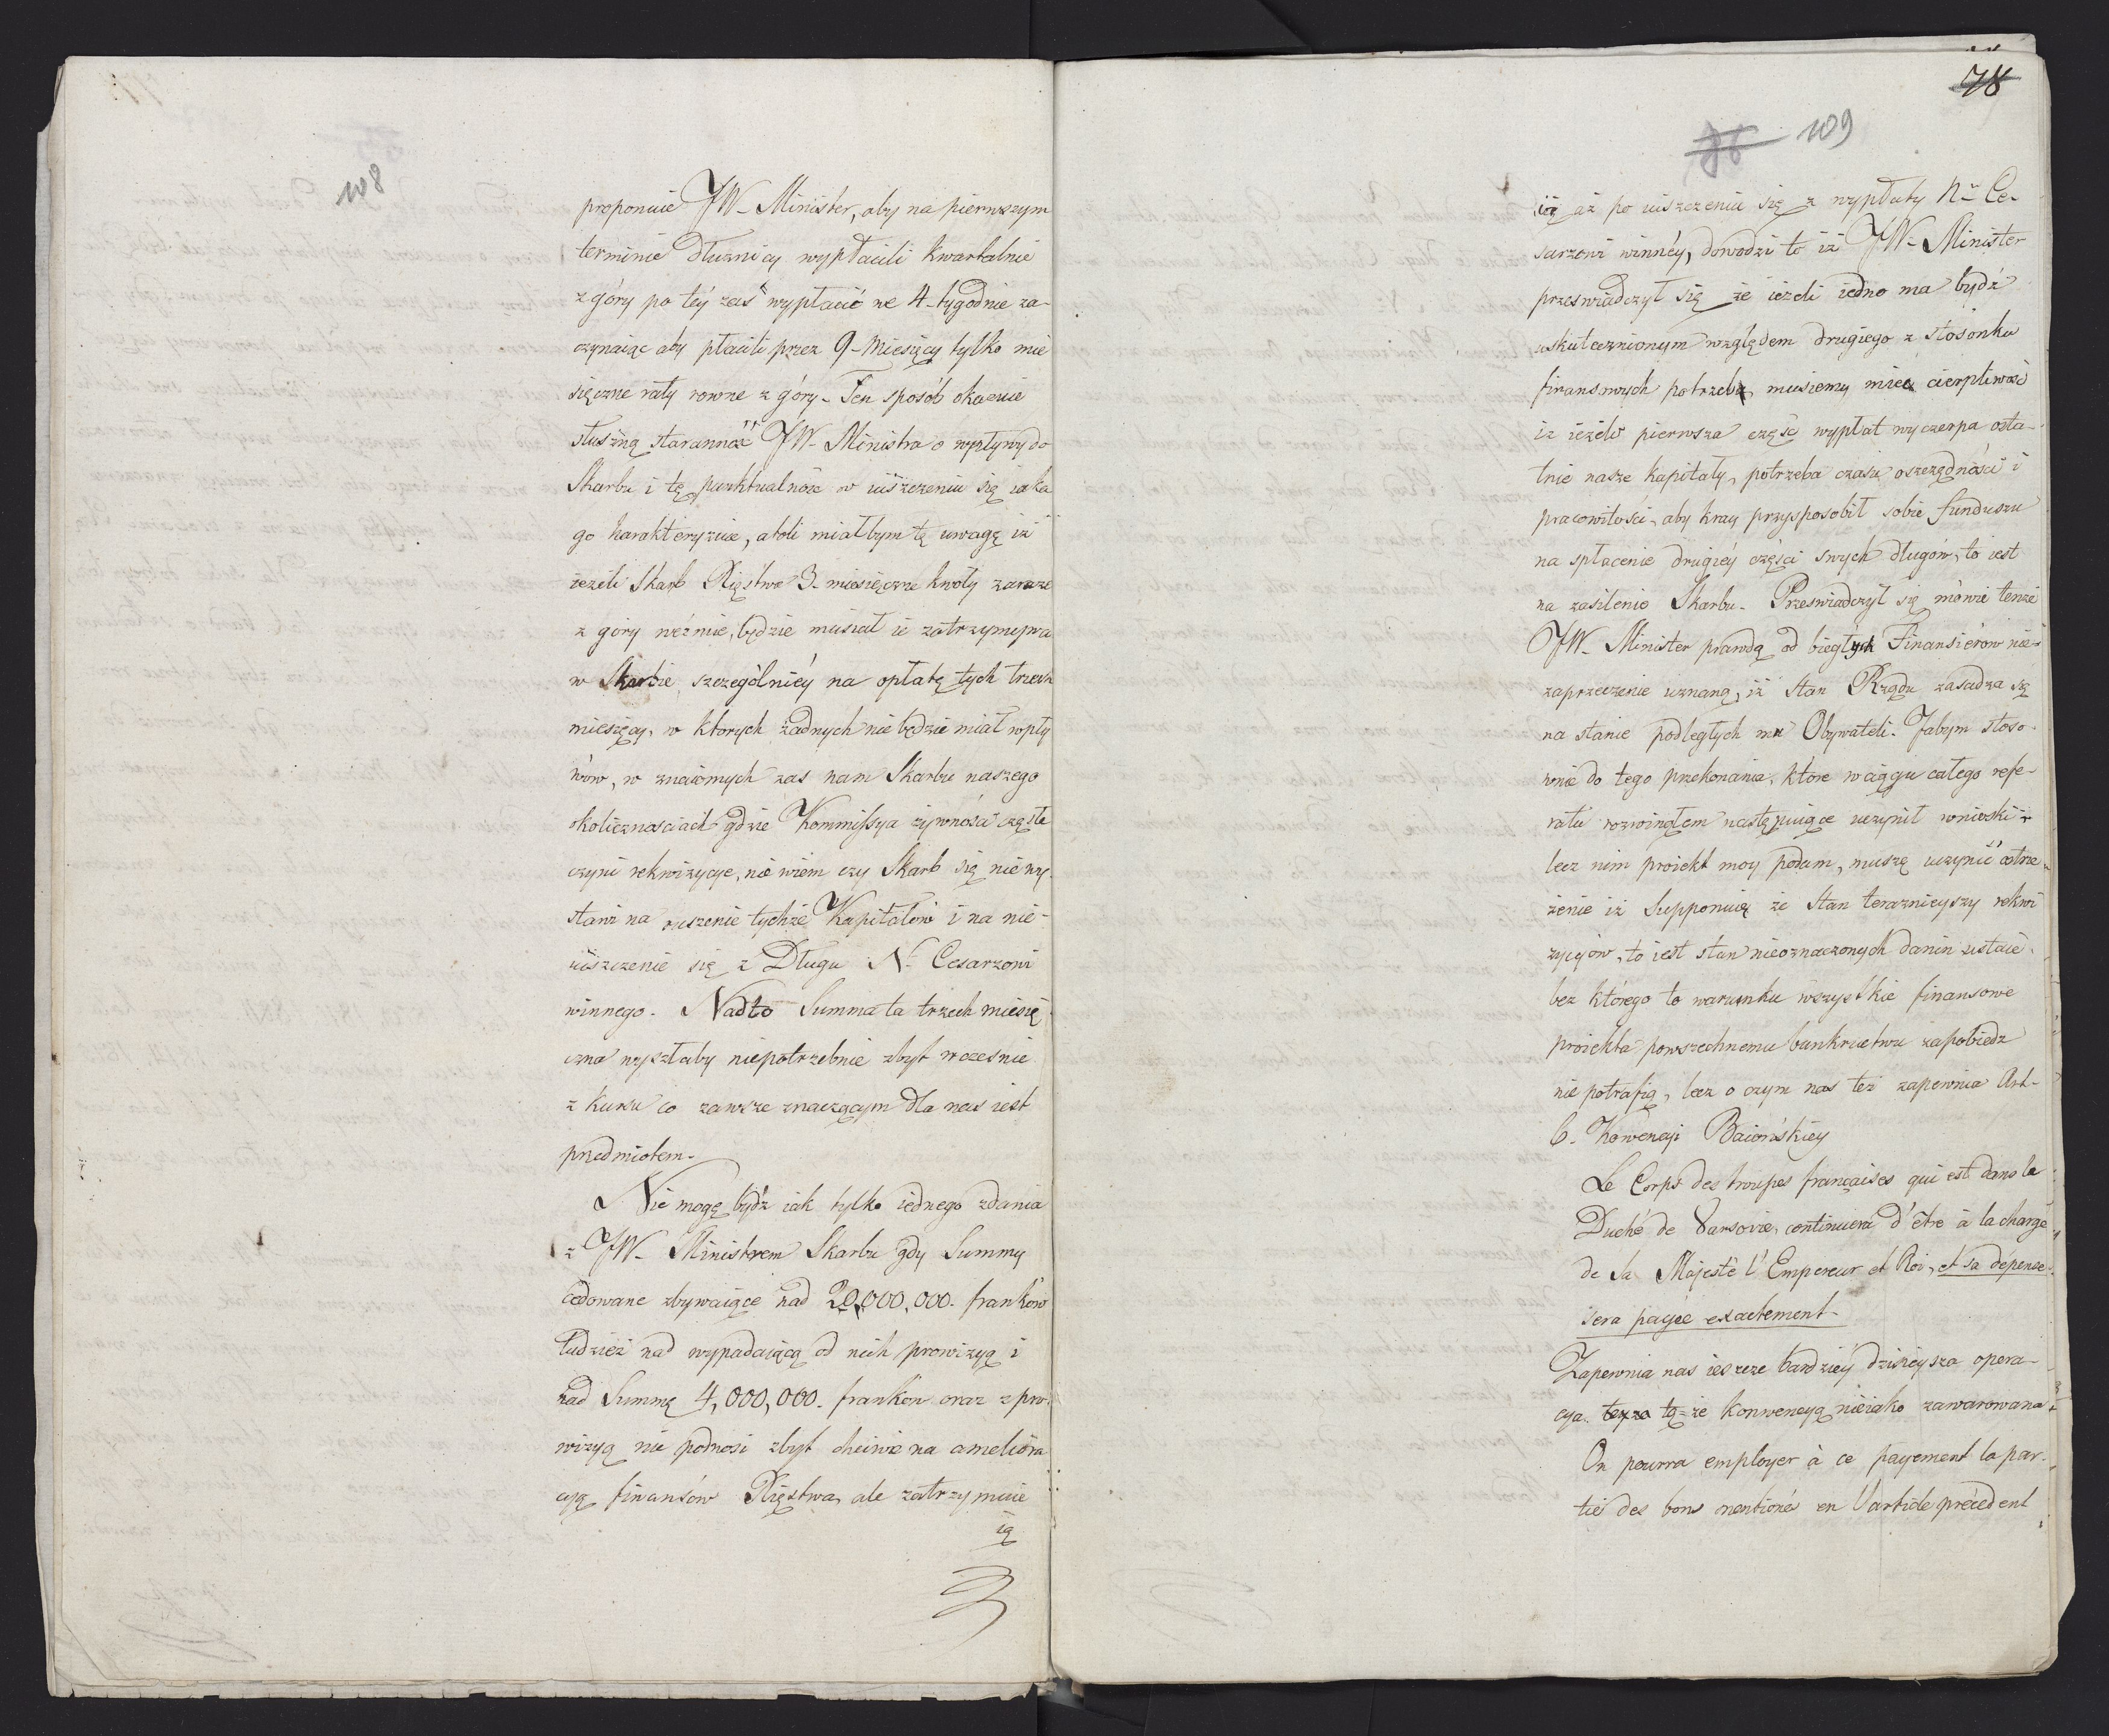 108
proponuie JW- Minister, aby na pierwszym
terminie Dłużnicy wypłacili kwartalnie
z góry po tey zas wypłacie we 4-tygodnie za-
czynaiąc aby płacili przez 9-Miesięcy tylko mie
sięczne raty rowne z góry- Ten sposób okazuie
słuszną staranność JW- Ministra o wpływy do
Skarbu i tę punktualnośc w uiszczeniu się iaka
go harakteryzuie, atoli miałbym tę uwagę iż
ieżeli Skarb Xięstwa 3-miesięczne kwoty zaraze
z góry weźmie, będzie musiał ie zatrzymywa
w Skarbie szczególniéy na opłatę tych trzech
miesięcy, w ktorych żadnych nie będzie miał wpły
wów, w znaiomych zas nam Skarbu naszego
okolicznosciach gdzie Kommissya żywnośći częste
czyni rekwizycye, nie wiem czy Skarb się nie wy-
stawi na ruszenie tychże Kapitałów i na nie-
uiszczenie się z Długu N- Cesarzowi
winnego. Nadto Summa ta trzech miesię
czna wyszłaby niepotrzebnie zbyt wczesnie
z kursu co zawsze znaczącym dla nas iest
przedmiotem-
Nie mogę bydź iak tylko iednego zdania
z JW- Ministrem Skarbu gdy Summy
cedowane zbywaiące nad 20,000,000. franków
tudzież nad wypadaiącą od nich prowizyą i
nad Summę 4,000,000. franków oraz z pro-
wizyą nie podnosi zbyt chciwie na ameliora
cyą finansów Xięstwa, ale zatrzymuie
ią
78
109
ią aż po uiszczeniu się z wypłaty N- Ce-
sarzowi winnéy, dowodzi to iż JW- Minister
przeswiadczył się że ieżeli iedno ma bydź
uskutecznionym względem drugiego z stosunku
finansowych potrzeb, musiemy miec cierpliwość
iż ieżeli pierwsza częsc wypłat wyczerpa osta-
tnie nasze kapitały, potrzeba czasu oszczędności i
pracowitości, aby kray przysposobił sobie funduszu
na spłacenie drugiéy części swych długów, to iest
na zasilenie Skarbu- Przeswiadczył się mówię tenże
JW- Minister prawdą od biegłych Finansierow nie-
zaprzeczenie uznaną, iż stan Rządu zasadza się
na stanie podległych mu Obywateli. Jabym stoso-
wnie do tego przekonania, ktore w ciągu całego refe-
ratu rozwinąłem następuiące uczynił wnioski-
lecz nim proiekt moy podam, muszę uczynić ostrze-
żenie iż Supponuię że Stan teraznieyszy rekwi
zycyów, to iest stan nieoznaczonych danin ustaie
bez którego to warunku wszystkie finansowe
proiekta powszechnemu bankructwu zapobiedz
nie potrafią, lecz o czym nas też zapewnia Art-
6. Konwencyi Baiońskiey
Le Corps des troupes françaises qui est dans le
Duché de Varsovie, continuera d'être à la charge
de Sa Majesté l'Empereur et Roi, et sa dépense
sera payée exactement-
Zapewnia nas ieszcze bardziéy dzisieysza opera-
cya. tąże konwencyą nieiako zawarowana
On pourra employer à ce payement la par-
tie des bons mentionés en l'article précedent